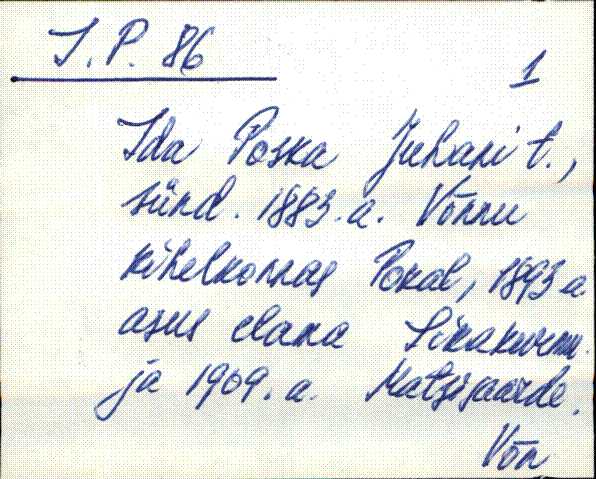 I. P. 86
1
Ida Poska Juhani t.,
sünd. 1883. a. Võnnu
kihelkonnas Pokal, 1893 a
asus elama Sikakurmu
ja 1969. a. Matsisaarde.
Võn